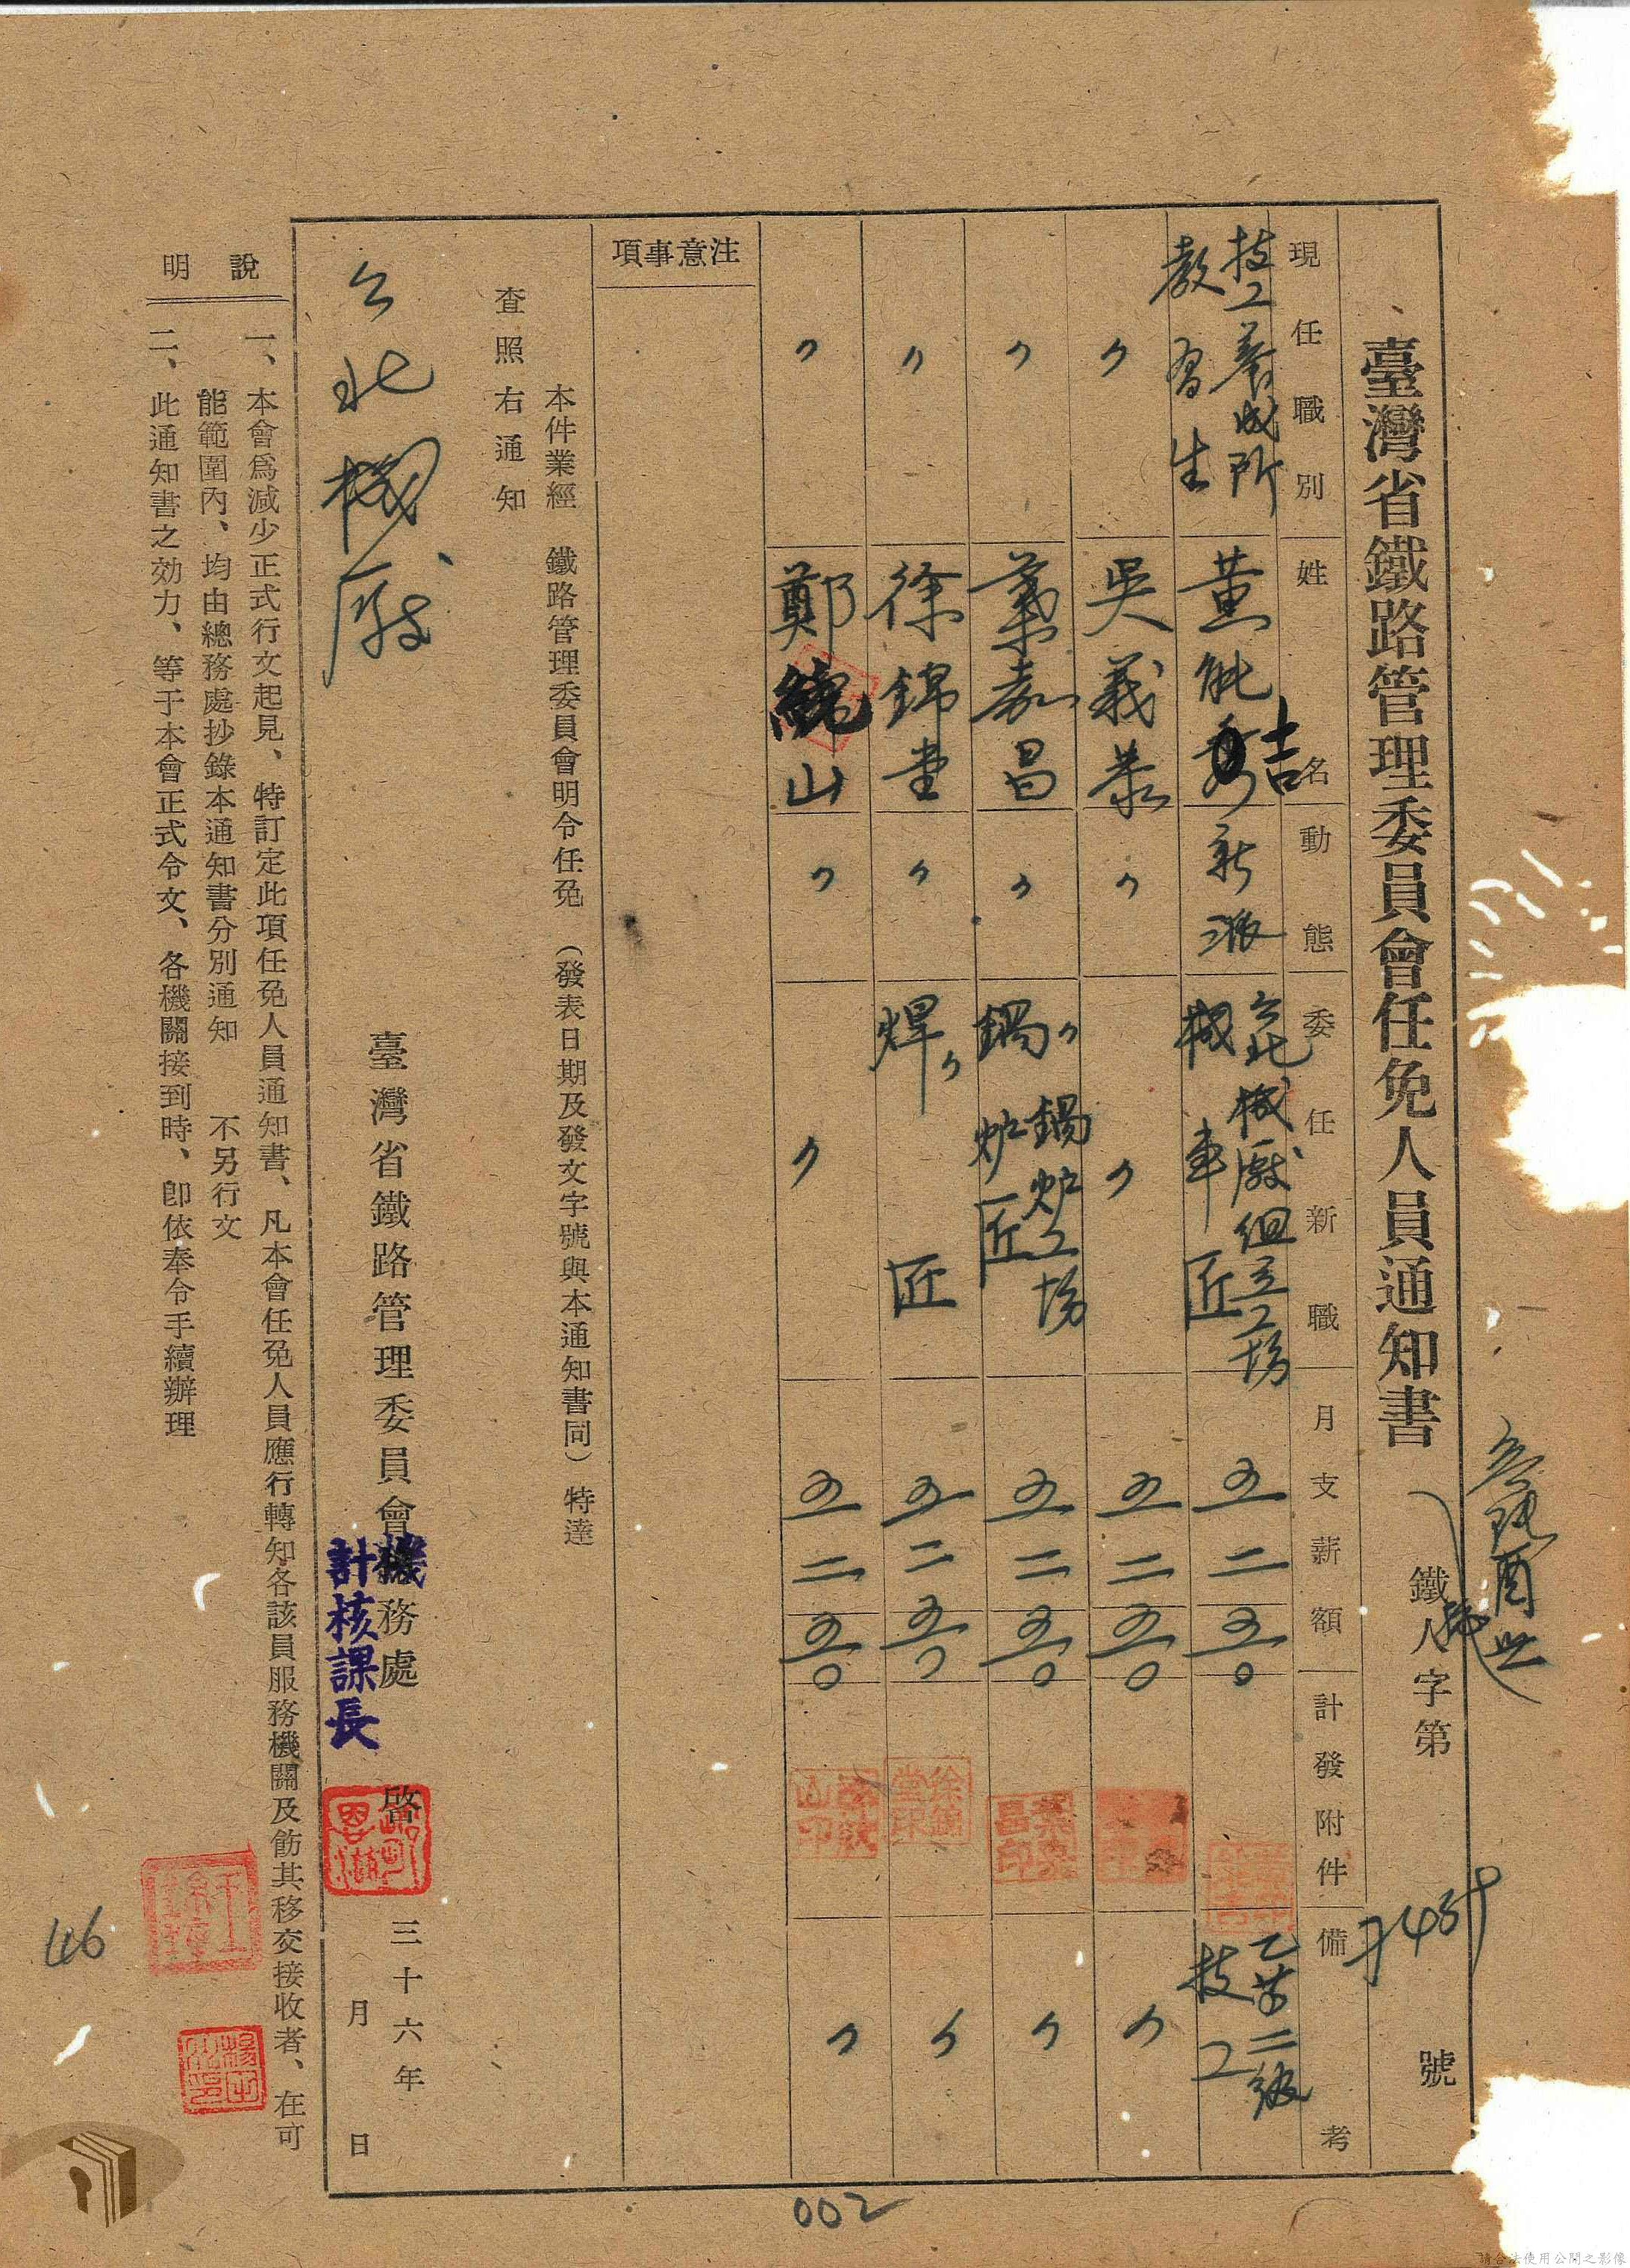 臺灣省鐵路管理委員會任免人員通知書
鐵人字第
號
現任職別
姓名
動態
委任新職
月支薪額
計發附件
備考
技工養成所
教習生
黃能
吉
新派
台北機廠組立工場
機車匠
五二五〇
乙等二級
技工
〃
吳義恭
〃
〃
五二五〇
〃
〃
葉嘉昌
〃
〃鍋炉工場
鍋炉匠
五二五〇
〃
〃
徐錦堂
〃
〃
焊匠
五二五〇
〃
〃
鄭統山
〃
〃
五二五〇
〃
注意事項
本件業經 鐵路管理委員會明令任免 (發表日期及發文字號與本通知書同) 特達
查照右通知
台北機廠
臺灣省鐵路管理委員會機務處 啓 三十六年
計核課長
月 日
說明
一、本會爲減少正式行文起見、特訂定此項任免人員通知書、凡本會任免人員應行轉知各該員服務機關及飭其移交接收者、在可
能範圍內、均由總務處抄錄本通知書分別通知 不另行文
二、此通知書之効力、等于本會正式令文、各機關接到時、卽依奉令手續辦理
46
002
請合法使用公開之影像